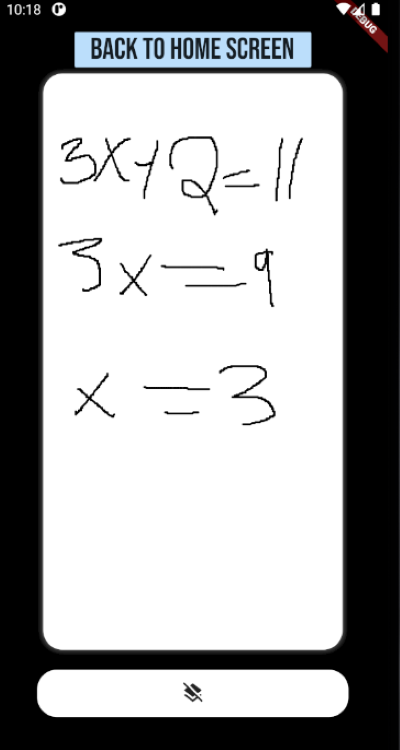 10:18
DEBUG
BACK TO HOME SCREEN
3x+2=11
3x=9
x=3